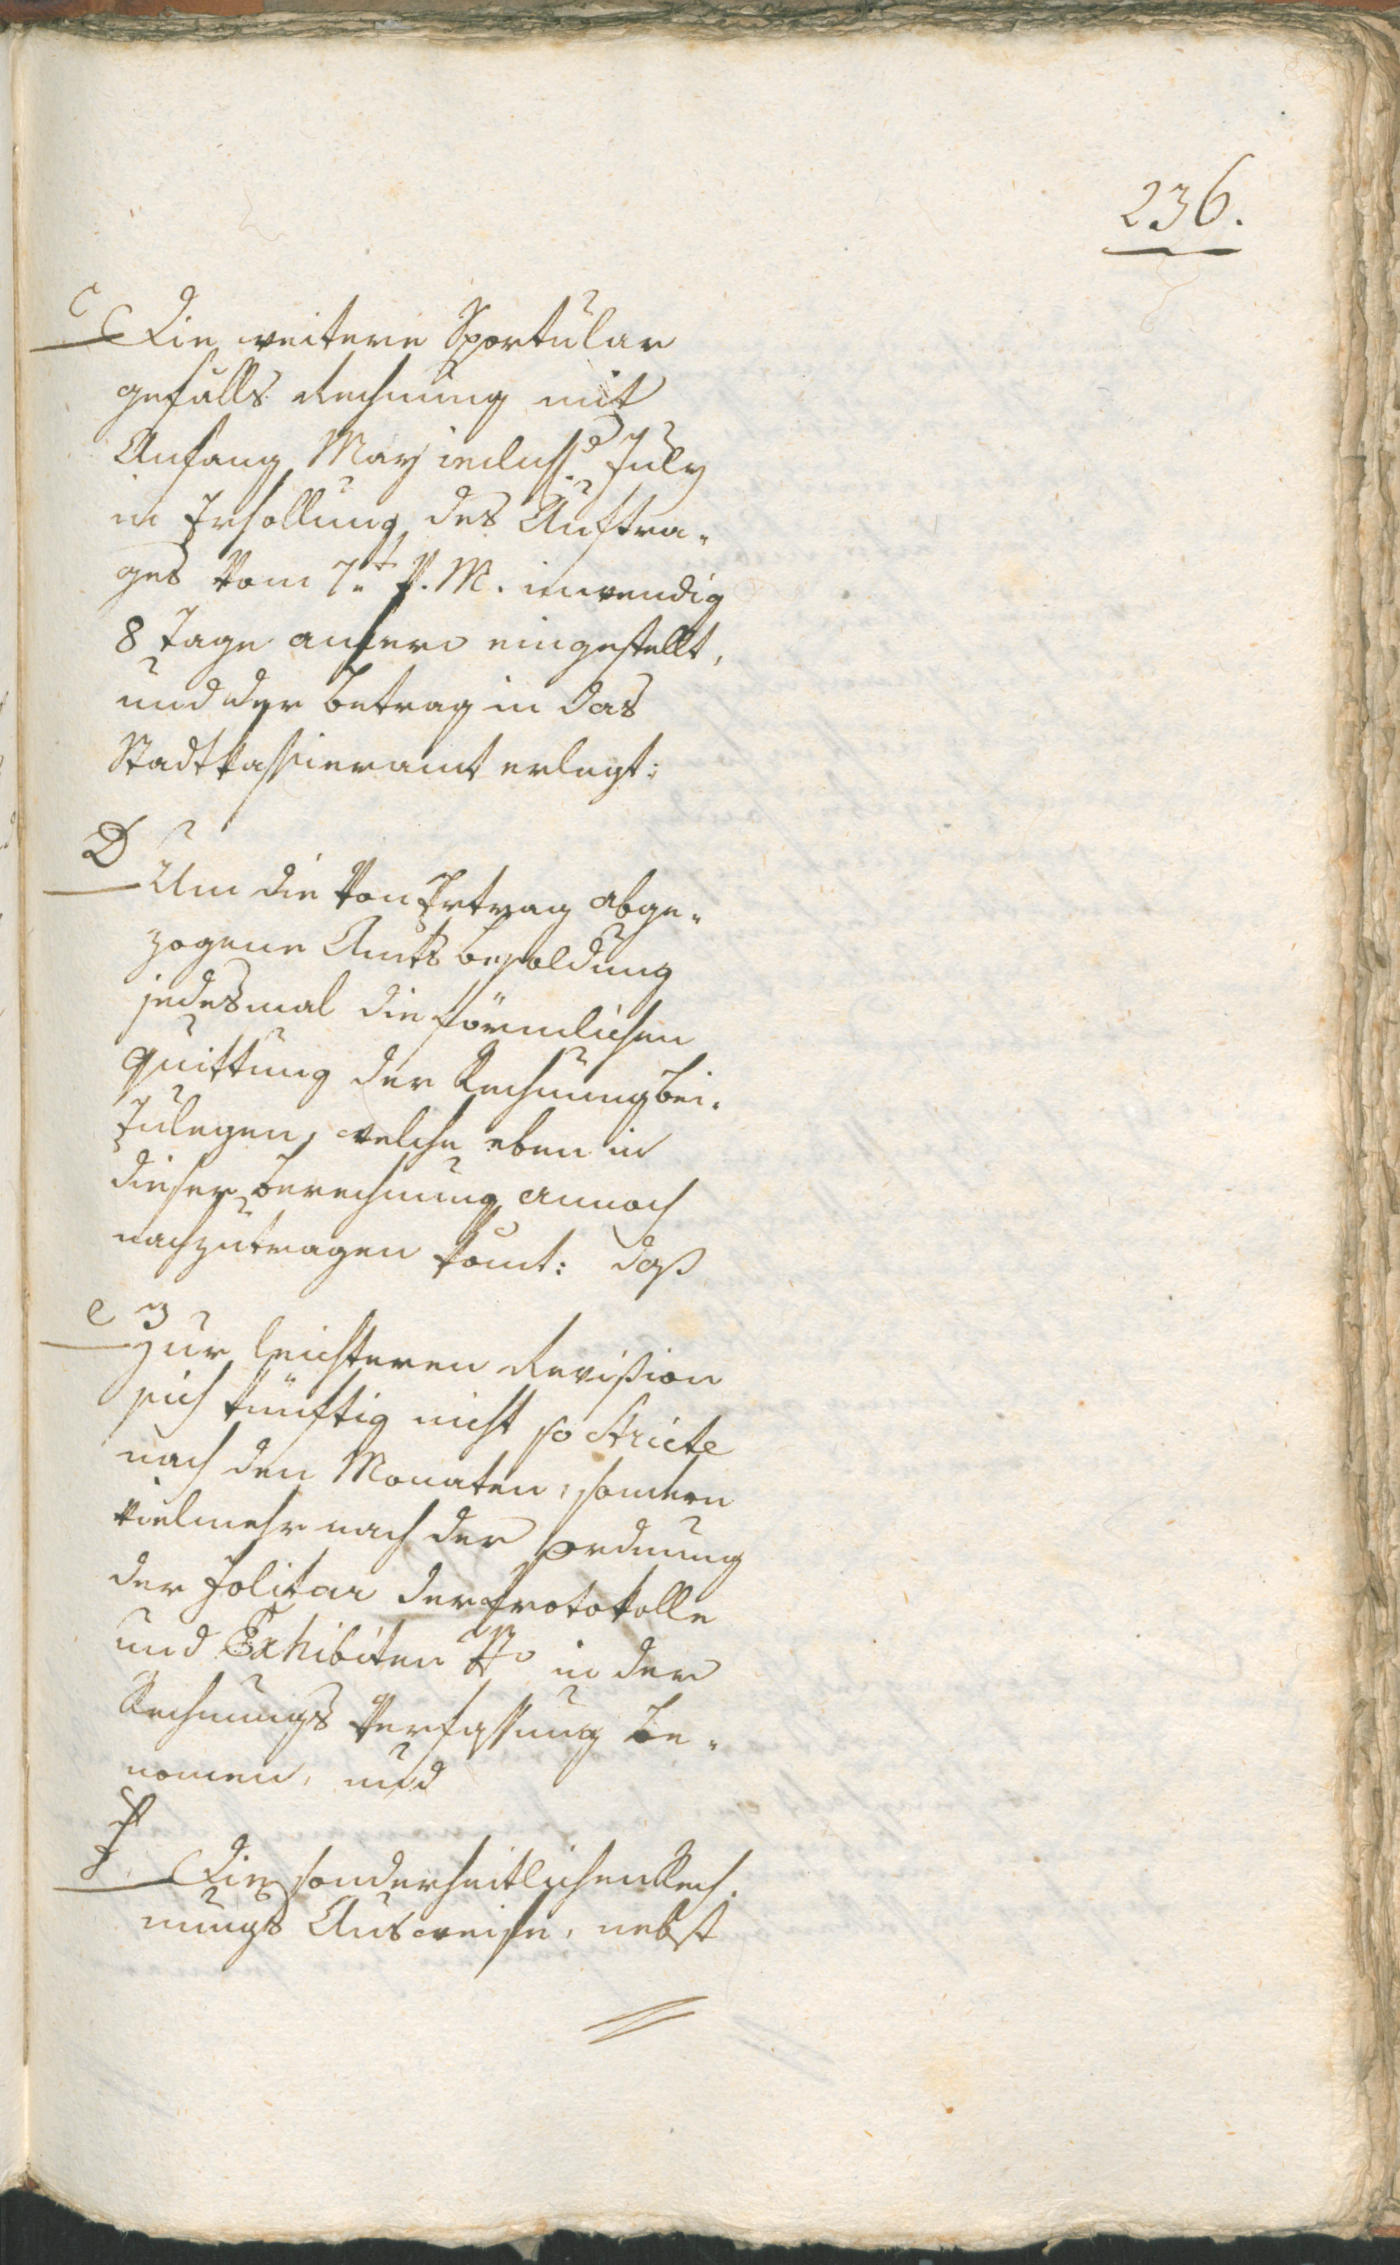 236.
C
Die weitere Sportular
gefälls Rechnung mit
Anfang May inclus. July
in Erhollung des Auftra-
ges vom 7.t v. M. inwendig
8 Tage anhero eingestellt,
und der Betrag in das
Stadtkassieramt erlegt:
D
Um die von Ertrag abge-
zogene Amts besoldung
jedesmal die förmlichen
Quittung der Rechnung bei-
zulegen, welche eben in
dieser Berechnung annoch
nachzutragen komt: daß
e
Zur leichteren Revißion
sich künftig nicht so stricte
nach den Monaten, sondern
vielmehr nach der Ordnung
der Folitar der Protokolle
und Exhibiten No in der
Rechnungs Verfassung be-
nomen, und
f
Die sonderheitlichen Rech-
nungs Ausweise, nebst